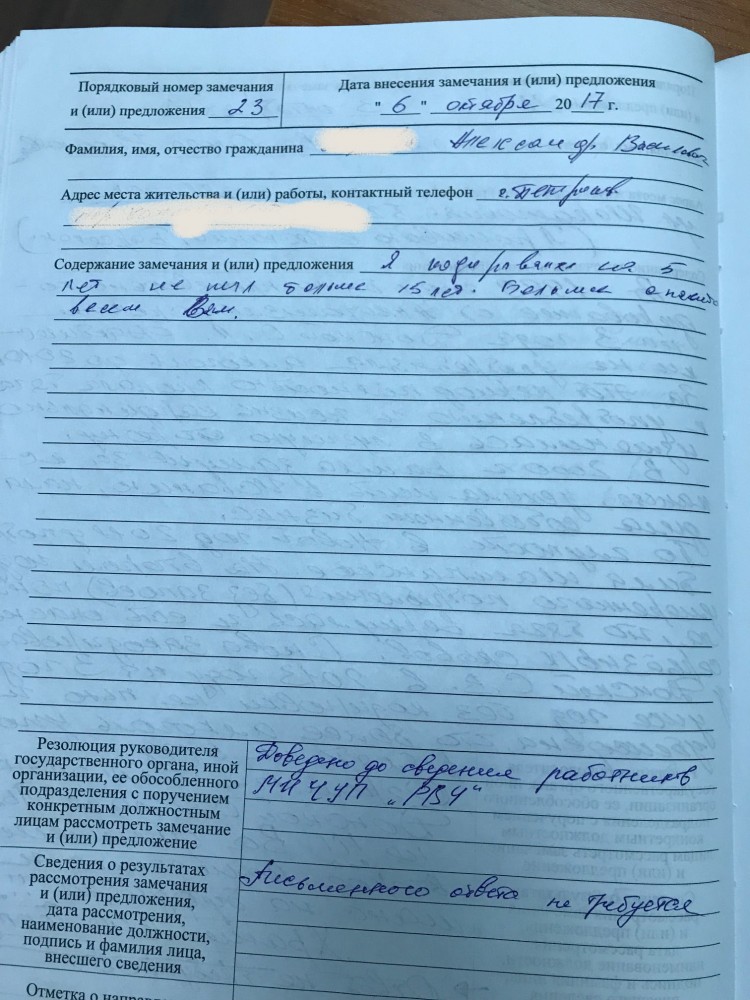 Порядковый номер замечания
и (или) предложения 23
Дата внесения замечания и (или) предложения
" 6 " октября 20 17 г.
Фамилия, имя, отчество гражданина Александр Васильевич
Адрес места жительства и (или) работы, контактный телефон г.
Содержание замечания и (или) предложения Я на 5
лет не пил больше 15 лет. Большое
всем Вам.
Резолюция руководителя
государственного органа, иной
организации, ее обособленного
подразделения с поручением
конкретным должностным
лицам рассмотреть замечание
и (или) предложение
Доведено до сведения работников
МНЧУП „РВЧ“
Сведения о результатах
рассмотрения замечания
и (или) предложения,
дата рассмотрения,
наименование должности,
подпись и фамилия лица,
внесшего сведения
Письменного ответа не требуется
Отметка о